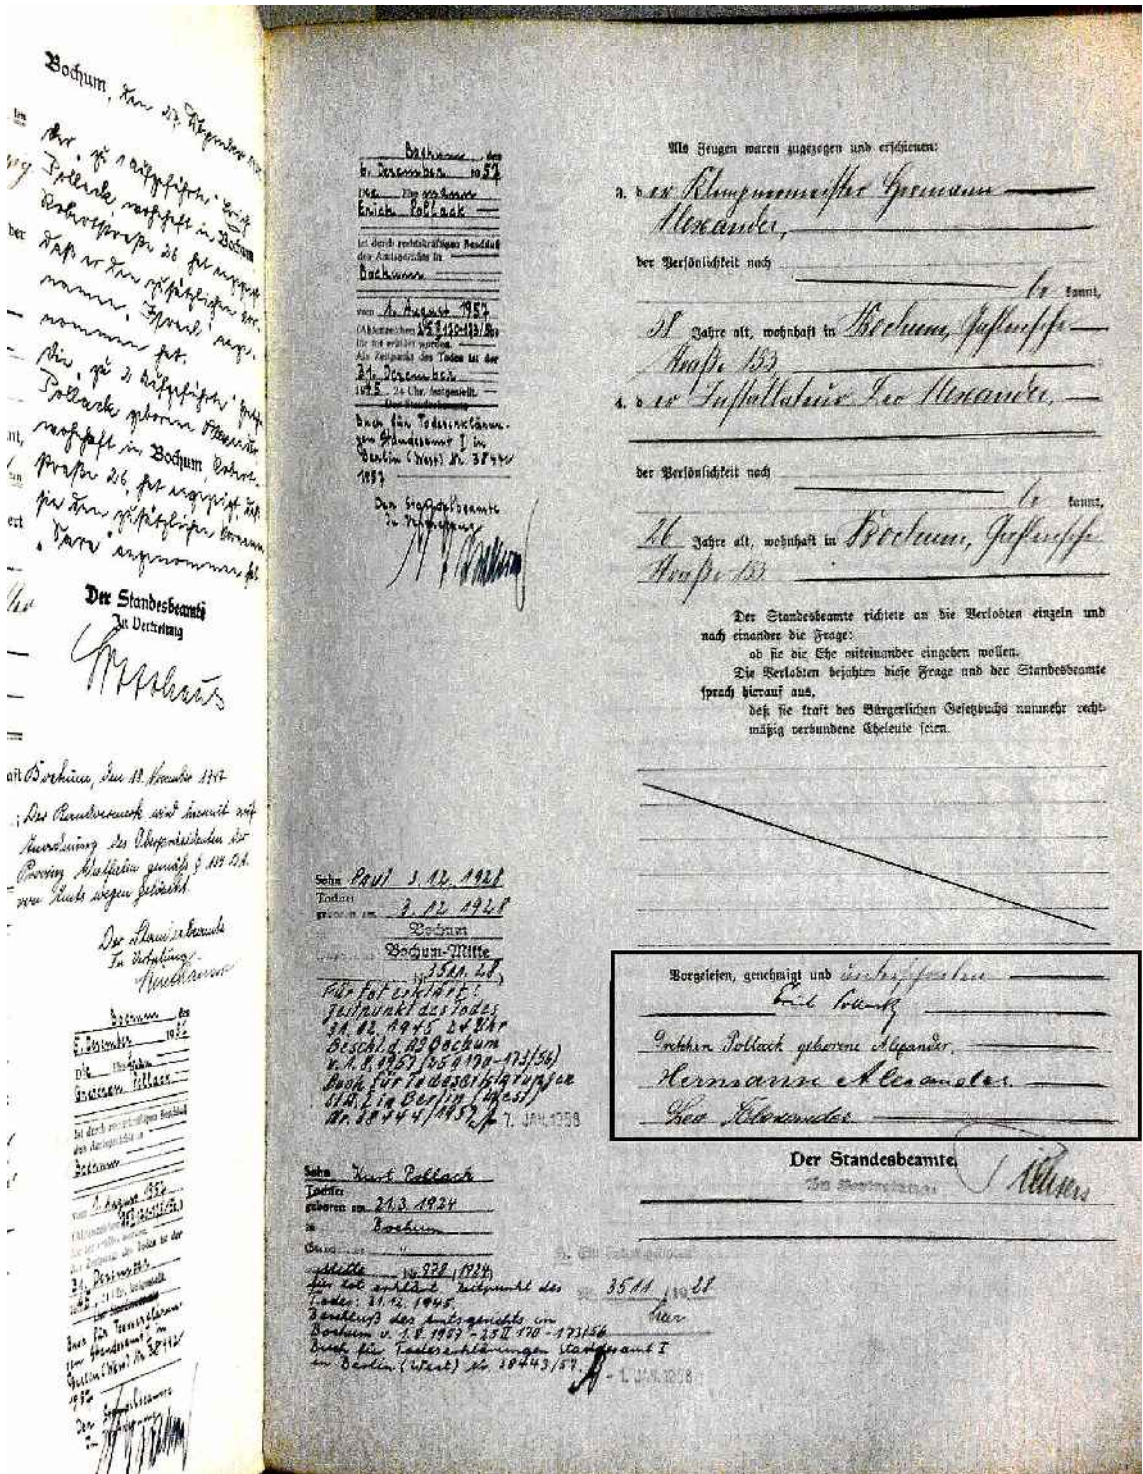 Bochum, den 27. Dezember
Der "zu 1 aufgeführte" Erich
Pollack, wohnhaft in Bochum
Robertstraße 26 hat angezeigt
daß er den zusätzlichen Vor-
namen "Israel" ange-
nommen hat.
Die "zu 2 aufgeführte"
Pollack geborene Alexander
wohnhaft in Bochum, Robert-
straße 26, hat angezeigt, daß
sie den zusätzlichen Vornamen
"Sara" angenommen hat
Der Standesbeamte
In Vertretung
Bochum, den 18. November 1947
Der Randvermerk wird hiermit auf
Anordnung des Oberpräsidenten der
Provinz Westfalen gemäß §
von Amts wegen gelöscht.
Der Standesbeamte
In Vertretung
Bochum den
6. Dezember 1957
Die Ehefrau
Gretchen Pollack
ist durch rechtskräftigen Beschluß
des Amtsgerichts in
Bochum
vom 1. August 1957
für tot erklärt worden.
Als Zeitpunkt des Todes ist der
31. Dezember
1945, 24 Uhr, festgestellt.
Der Standesbeamte
Buch für Todeserklärun-
gen Standesamt I in
Berlin (West) Nr. 38442
1957
Der Standesbeamte
In Vertretung
Bochum den
6. Dezember 1957
Der Ehemann
Erich Pollack
ist durch rechtskräftigen Beschluß
des Amtsgerichts in
Bochum
vom 1. August 1957
(Aktenzeichen 25 II 170-173/56)
für tot erklärt worden.
Als Zeitpunkt des Todes ist der
31. Dezember
1945, 24 Uhr, festgestellt.
Der Standesbeamte
Buch für Todeserklärun-
gen Standesamt I in
Berlin (West) Nr. 38441
1957
Der Standesbeamte
In Vertretung
Sohn Paul 3.12.1928
Tochter
geboren am 3.12.1928
Bochum
Bochum-Mitte
Nr. 3511.28
Für tot erklärt:
Zeitpunkt des Todes
31.12.1945 24 Uhr
Beschl. d. AG Bochum
v. 1.8.1957 (25 II 170-173/56)
Buch für Todeserklärungen
St.A. I in Berlin (West)
Nr. 38444/1957
7. JAN. 1958
Sohn Kurt Pollack
Tochter
geboren am 21.3.1924
in Bochum
Mitte Nr. 978/1924
für tot erklärt Zeitpunkt des
Todes: 31.12.1945.
Beschluß des Amtsgerichts in
Bochum v. 1.8.1957 - 25 II 170-173/56
Buch für Todeserklärungen Standesamt I
in Berlin (West) Nr. 38443/57.
- 1. JAN. 1958
3511 / 1928
Als Zeugen waren zugezogen und erschienen:
3. der Klempnermeister Hermann
Alexander,
der Persönlichkeit nach
be kannt,
58 Jahre alt, wohnhaft in Bochum, Gahlensche
Straße 153
4. der Installateur Leo Alexander,
der Persönlichkeit nach
be kannt,
26 Jahre alt, wohnhaft in Bochum, Gahlensche
Straße 153
Der Standesbeamte richtete an die Verlobten einzeln und
nach einander die Frage:
ob sie die Ehe miteinander eingehen wollen.
Die Verlobten bejahten diese Frage und der Standesbeamte
sprach hierauf aus,
daß sie kraft des Bürgerlichen Gesetzbuchs nunmehr recht-
mäßig verbundene Eheleute seien.
Vorgelesen, genehmigt und unterschrieben
Erich Pollack
Gretchen Pollack geborene Alexander.
Hermann Alexander.
Leo Alexander
Der Standesbeamte.
In Vertretung